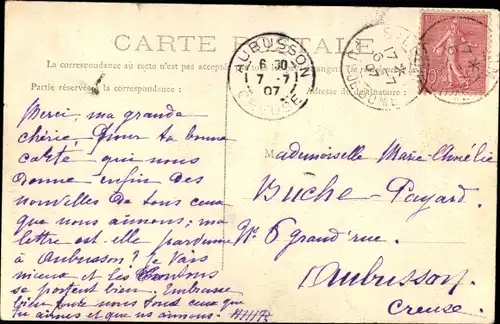 CARTE POSTALE
La correspondance au recto n'est pas acceptée
Partie réservée à la correspondance
Adresse du destinataire
AUBUSSON
6 30
7 - 7
07
CREUSE
17
6-7
07
10
Merci, ma grande
chérie pour ta bonne
carte qui nous
donne enfin des
nouvelles de tous ceux
que nous aimons; ma
lettre est-elle parvenue
à Aubusson? Je vais
mieux et les
se portent bien. Embrasse
bien toute nous tous ceux que
tu aimes et que ns aimons.
Mademoiselle Marie-Amélie
Buche-Payard.
No 6 grand'rue.
Aubusson.
Creuse.